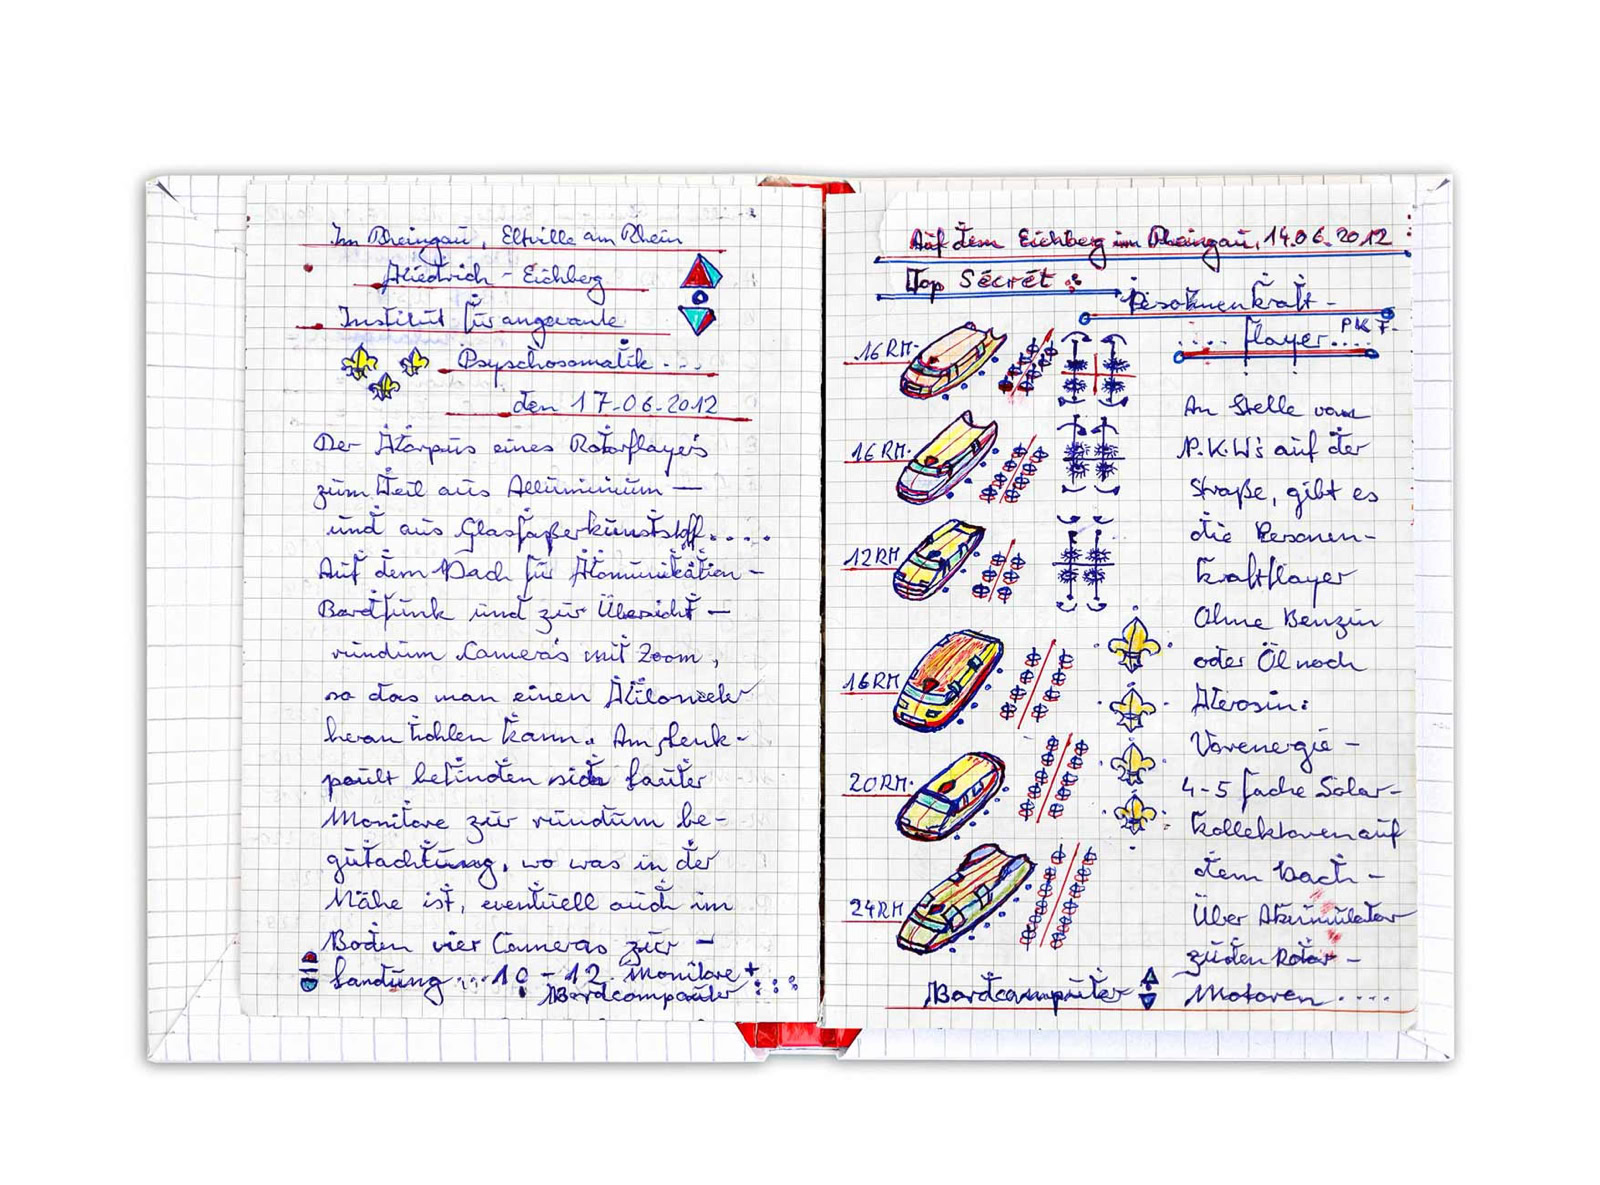 Im Rheingau, Eltville am Rhein
Kiedrich - Eichberg
Institut für angewante
Psyschosomatik...
den 17-06-2012
Der Korpus eines Rotorflayer's
zum Teil aus Alluminium —
und aus Glasfaßerkunststoff....
Auf dem Dach für Komunikation —
Bordfunk und zur Übersicht —
rundum Camera's mit Zoom,
so das man einen Kilometer
heran hohlen kann. Am Lenk-
pault befinden sich lauter
Monitore zur rundum be-
gutachtung, wo was in der
Nähe ist, eventuell auch im
Boden vier Cameras zur —
Landung...10 - 12 Monitore +
Bordcomputer
Auf dem Eichberg im Rheingau, 14.06.2012
Top Sécrét
Pesohnenkraft-
.... flayer.... PKF.
16 RM.
16 RM.
12 RM
16 RM
20 RM.
24 RM
Bordcomputer
An Stelle von
P.K.W's auf der
Straße, gibt es
die Personen-
kraftflayer
Ohne Benzin
oder Öl noch
Kerosin:
Vorenergie -
4-5 fache Solar-
kollektoren auf
dem Dach -
Über Akumulator
zu den Rotor -
Motoren ....